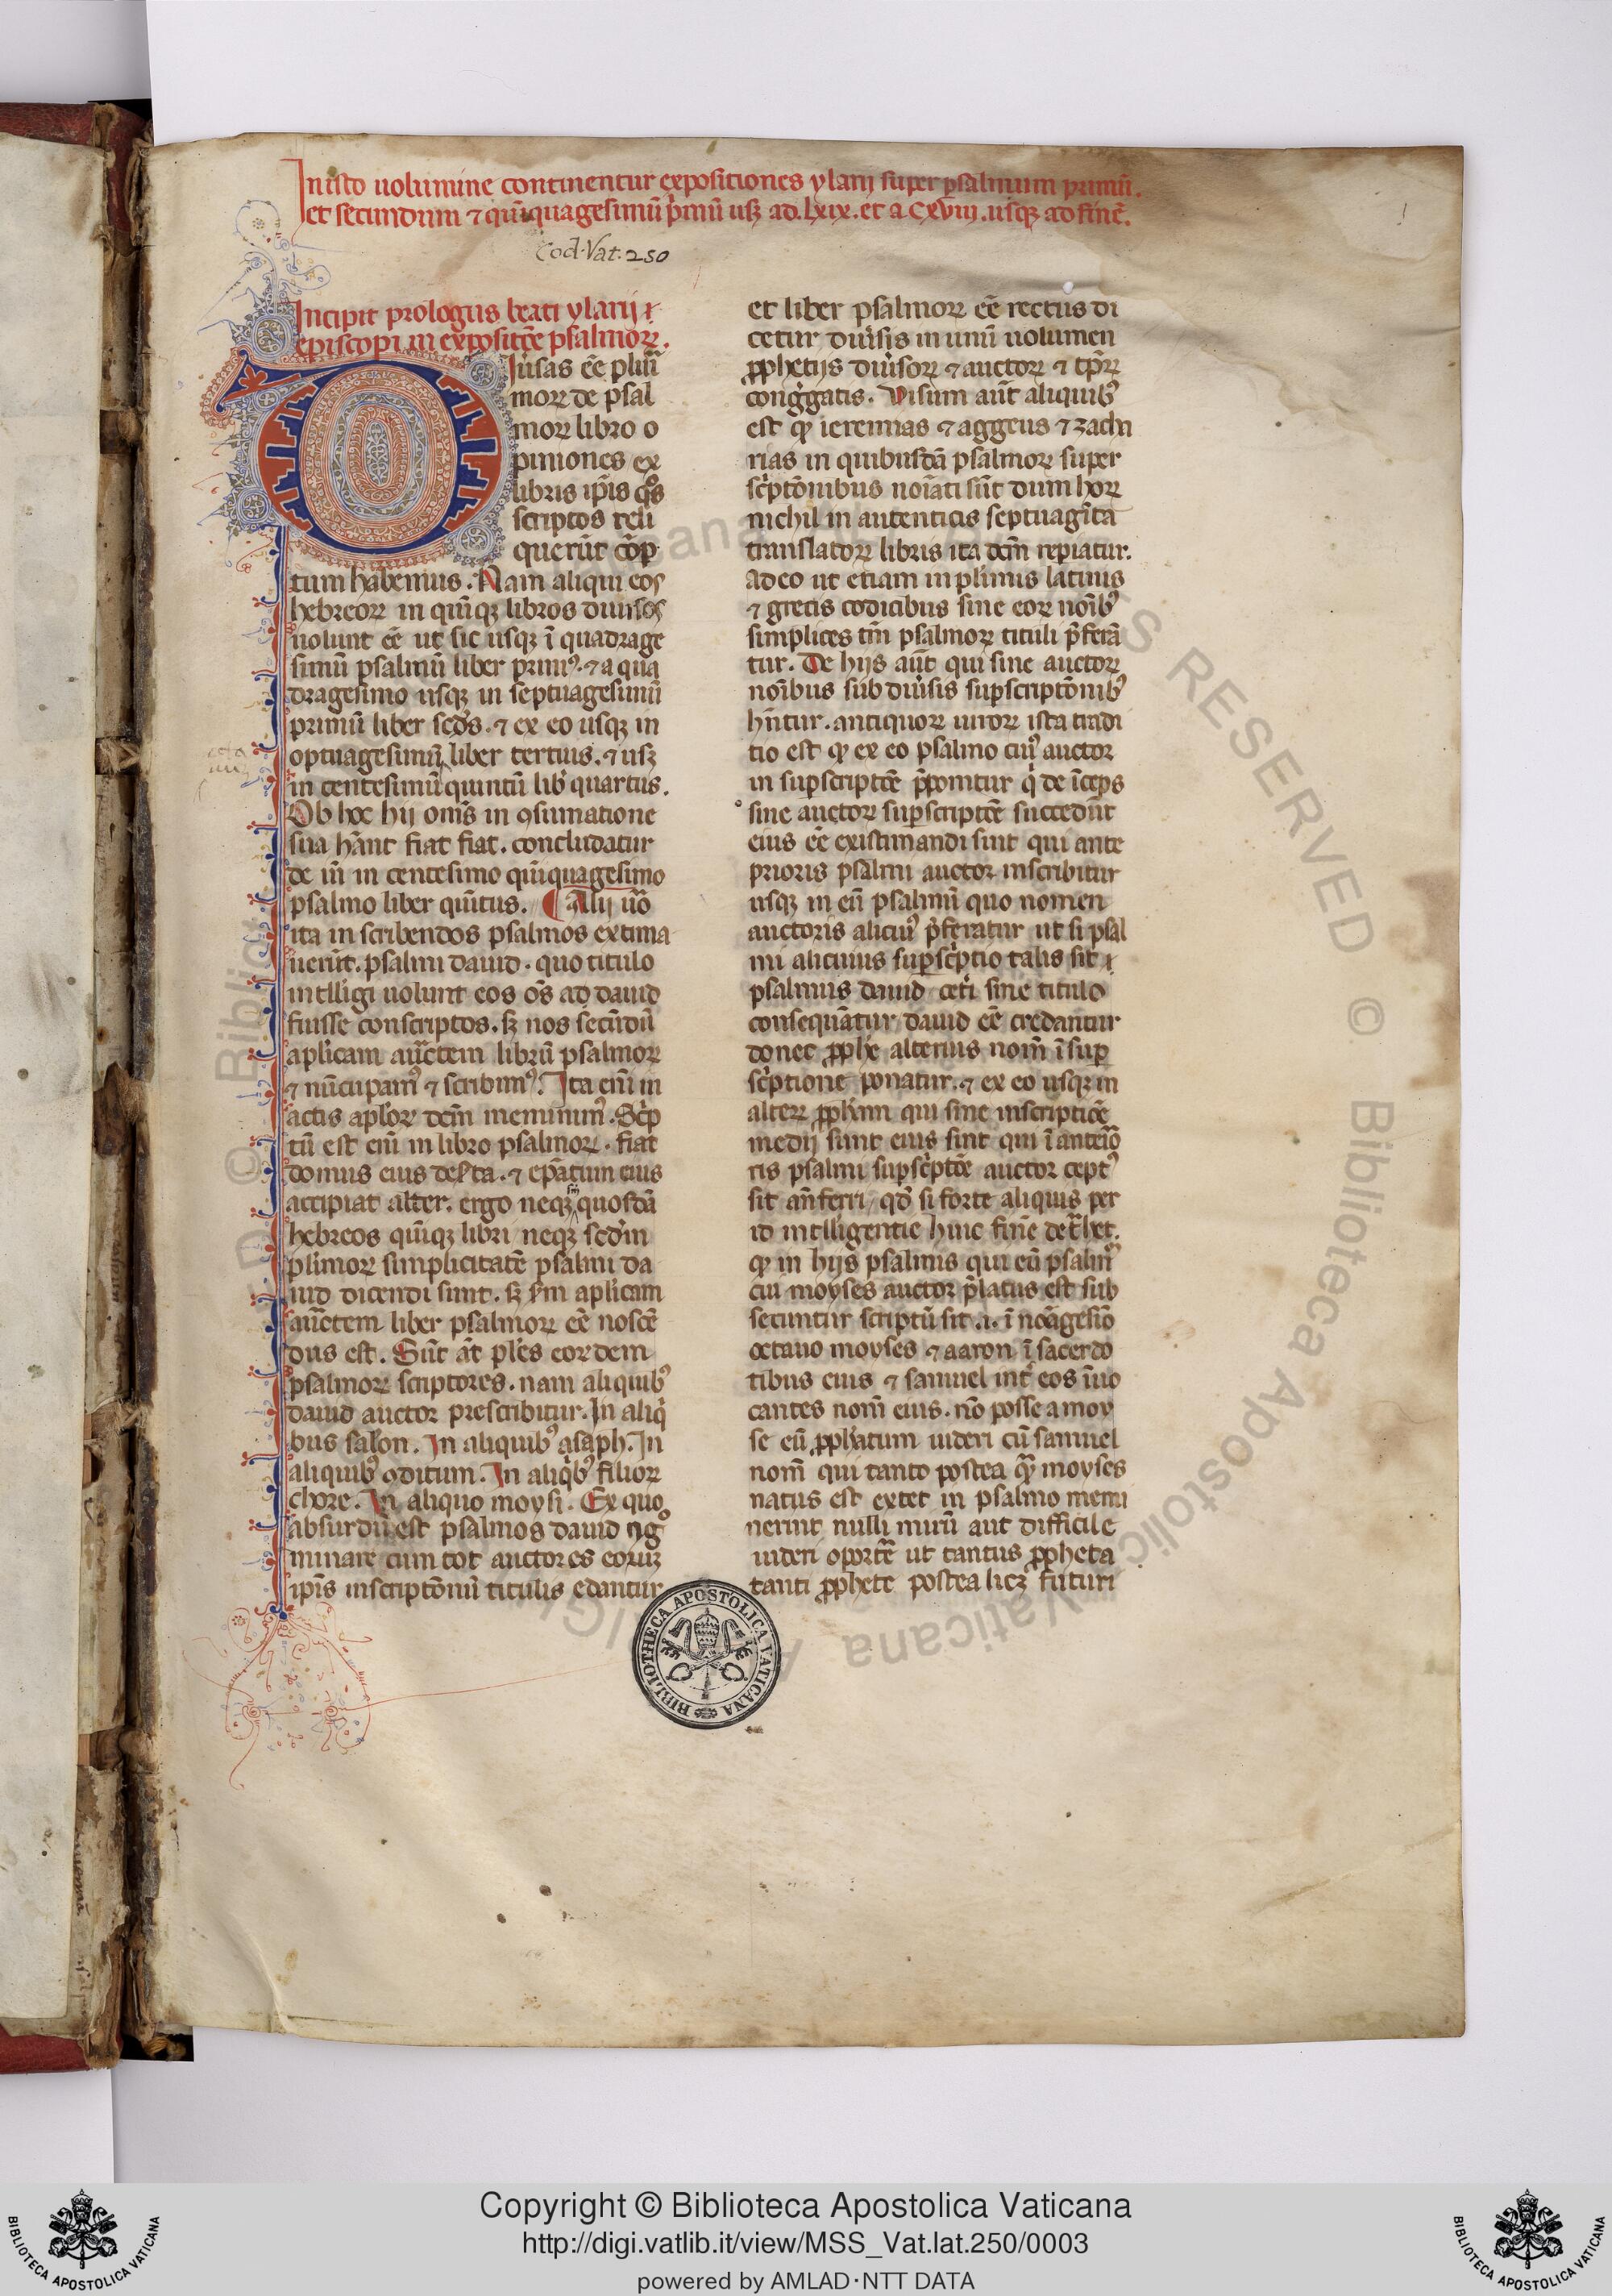 In isto uolumine continentur expositiones ylarij super psalmum primũ.
et secundum ⁊ quĩquagesimũ p̃mũ usqꝫ ad .lxix. et a .Cxviii. usqꝫ ad finẽ.
Cod. Vat. 250
1
Incipit prologus beati ylarij
episcopi in expositõe psalmoꝝ.
Diũsas eẽ plurĩ
moꝝ de psal
moꝝ libro o
piniones ex
libris ip̃is q̃s
scriptos reli
querũt cõp
tum habemus. Nam aliqui eos
hebreoꝝ in quĩqꝫ libros diuisos
uolunt eẽ ut sic usqꝫ ĩ quadrage
simũ psalmũ liber primꝰ. ⁊ a qua
dragesimo usqꝫ in septuagesimũ
primũ liber sc̃ds. ⁊ ex eo usqꝫ in
optuagesimũ liber tertius. ⁊ usqꝫ
in centesimũ quintũ lib̾ quartus.
Ob hoc hij om̃s in ꝯsumatione
sua hãnt fiat fiat. concludatur
de iñ in centesimo quĩquagesimo
psalmo liber quĩtus. ¶ Alij ũo
ita in scribendos psalmos extima
uerũt. psalmi dauid. quo titulo
intlligi uolunt eos oẽs ad dauid
fuisse conscriptos. sꝫ nos secũdũ
aplicam auc̃tem librũ psalmoꝝ
⁊ nũcupamꝰ ⁊ scribimꝰ. Ita eni̾ in
actis aploꝝ dem̃ meminimꝰ. Sc̾p
tũ est eni̾ in libro psalmoꝝ. fiat
domus eius de̾ta. ⁊ ep̃atum eius
accipiat alter. ergo neqꝫ sm̃ quosdã
hebreos quĩqꝫ libri neqꝫ sc̃dm
plimoꝝ simplicitatẽ psalmi da
uid dicendi sunt. sꝫ sm̃ aplicam
auc̃tem liber psalmoꝝ eẽ noscẽ
dus est. Sũt aũt pl̾es eordem
psalmoꝝ scriptores. nam aliquibꝰ
dauid auctor prescribitur. In aliq̾
bus salon. In aliquibꝰ asaph. In
aliquibꝰ oditum. In aliq̾bꝰ filioꝝ
chore. In aliquo moysi. Ex quo
absurdũ est psalmos dauid ꝯgͦ
minare cum tot auctores eoruꝫ
ip̃is inscriptõnũ titulis edantur
et liber psalmoꝝ eẽ rectus di
cetur diu̾sis in unũ uolumen
ꝓphetijs diu̾soꝝ ⁊ auctoꝝ ⁊ tp̃ꝝ
cong̾gatis. Visum aũt aliquibꝰ
est ꝙ ieremias ⁊ aggeus ⁊ zacha
rias in quibusdã psalmoꝝ super
sc̾ptõnibus noĩati sũt dum hoꝝ
nichil in autenticis septuagĩta
translatoꝝ libris ita dem̃ rep̾iatur.
adeo ut etiam in pl̾imis latinis
⁊ grecis codicibus sine eoꝝ noĩbꝰ
simplices tm̃ psalmoꝝ tituli p̃ferã
tur. De hijs aũt qui sine auctoꝝ
noĩbus sub diu̾sis supscriptõnibꝰ
hñtur. antiquoꝝ uiroꝝ ista tradi
tio est ꝙ ex eo psalmo cuiꝰ auctor
in supscriptõe p̃ponitur q̾ de ĩceps
sine auctoꝝ supscriptõe succedũt
eius eẽ existimandi sint qui ante
prioris psalmi auctor inscribitur
usqꝫ in eũ psalmũ quo nomen
auctoris aliciuꝰ p̃feratur ut si psal
mi alicuius supsc̾ptio talis sit
psalmus dauid cet̾i sine titulo
consequãtur dauid eẽ credantur
donec ꝓphe alterius nom̃ ĩ sup
sc̾ptione ponatur. ⁊ ex eo usqꝫ in
alteꝝ ꝓph̾m qui sine inscriptiõe
medij sunt eius sint qui ĩ anteio
ris psalmi supsc̾ptõe auctor ceptꝰ
sit añferri, qd̾ si forte aliquis per
id intlligentie huic finẽ det̾het.
ꝙ in hijs psalmis qui eũ psalm̃
cui moyses auctor p̃latus est sub
secuntur scriptũ sit .i. ĩ nõagesio
octauo moyses ⁊ aaron ĩ sacerdo
tibus eius ⁊ samuel int̾ eos ĩuo
cantes nom̃ eius. nõ posse a moy
se eũ ꝓph̾atum uideri cũ samuel
nom̃ qui tanto postea q̃ moyses
natus est extet in psalmo memi
nerint nulli mirũ aut difficile
uideri oport̾e ut tantus ꝓpheta
tanti ꝓphete postea liczͭ futuri